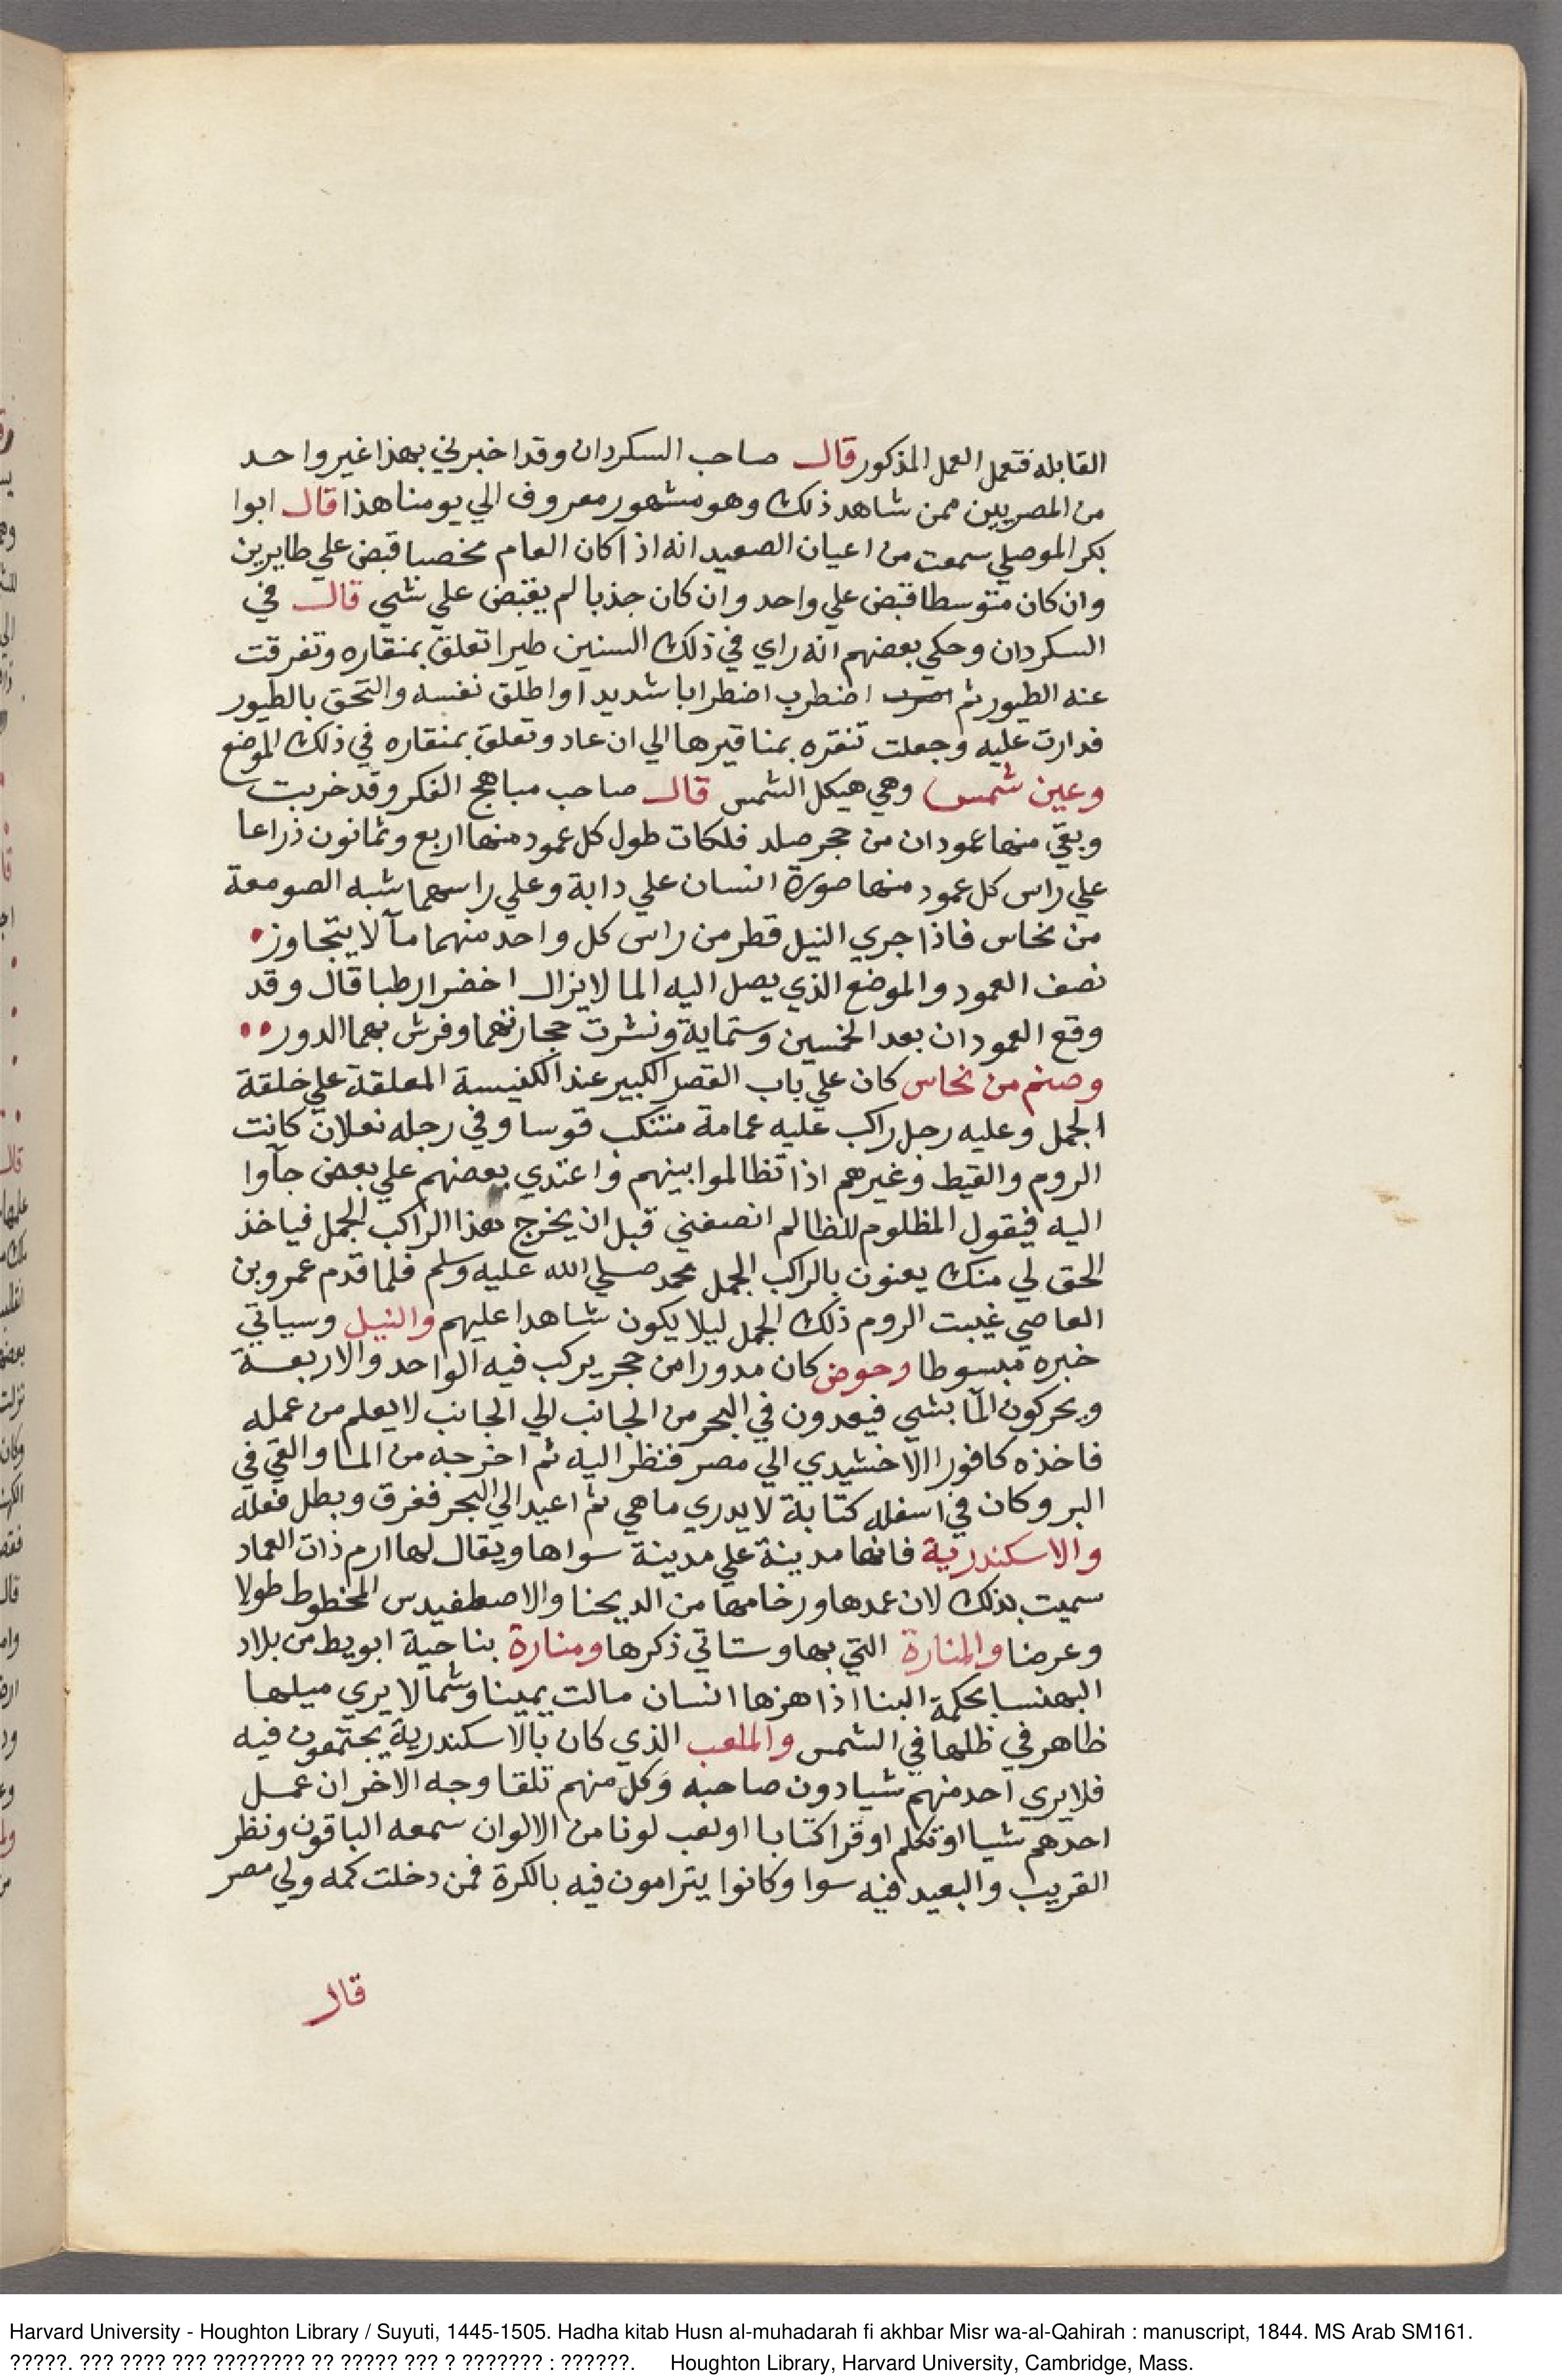 القابله فتعمل العمل المذكور قال صاحب السكردان وقد اخبرني بهذا غير واحد
من المصريين ممن شاهد ذلك وهو مشهور معروف الي يومنا هذا قال ابوا
بكر الموصلي سمعت من اعيان الصعيد انه اذا كان العام مخصبا قبض علي طايرين
وان كان متوسطا قبض علي واحد وان كان جذبا لم يقبض علي شي قال في
السكردان وحكي بعضهم انه راي في ذلك السنين طيرا تعلق بمنقاره وتفرقت
عنه الطيور ثم اضطرب اضطرابا شديدا واطلق نفسه والتحق بالطيور
فدارت عليه وجعلت تنقره بمناقيرها الي ان عاد وتعلق بمنقاره في ذلك الموضع
وعين شمس وهي هيكل الشمس قال صاحب مباهج الفكر وقد خربت
وبقي منها عمودان من حجر صلد فلكات طول كل عمود منها اربع وثمانون ذراعا
علي راس كل عمود منها صورة انسان علي دابة وعلي راسهما شبه الصومعة
من نحاس فاذا جري النيل قطر من راس كل واحد منهما مآ لا يتجاوز
نصف العمود والموضع الذي يصل اليه الما لا يزال اخضرا رطبا قال وقد
وقع العمودان بعد الخمسين وستماية ونشرت حجارتهما وفرش بهما الدور
وصنم من نحاس كان علي باب القصر الكبير عند الكنيسة المعلقة علي خلقة
الجمل وعليه رجل راكب عليه عمامة متنكب قوسا وفي رجله نعلان كانت
الروم والقبط وغيرهم اذا تظالموا بينهم واعتدي بعضهم علي بعض جآوا
اليه فيقول المظلوم للظالم انصفني قبل ان يخرج هذا الراكب الجمل فياخذ
الحق لي منك يعنون بالراكب الجمل محمد صلي الله عليه وسلم فلما قدم عمرو بن
العاصي غيبت الروم ذلك الجمل ليلا يكون شاهدا عليهم والنيل وسياتي
خبره مبسوطا وحوض كان مدورا من حجر يركب فيه الواحد والاربعة
ويحركون المآ بشي فيعدون في البحر من الجانب الي الجانب لا يعلم من عمله
فاخذه كافور الاخشيدي الي مصر فنظر اليه ثم اخرجه من الما والقي في
البر وكان في اسفله كتابة لا يدري ما هي ثم اعيد الي البحر فغرق وبطل فعله
والاسكندرية فانها مدينة علي مدينة سواها ويقال لها ارم ذات العماد
سميت بذلك لان عمدها ورخامها من الديجنا والاصطفيدس المخطوط طولا
وعرضا والمنارة التي بها وستاتي ذكرها ومنارة بناحية ابويط من بلاد
البهنسا محكمة البنا اذا هزها انسان مالت يمينا وشمالا يري ميلها
ظاهر في ظلها في الشمس والملعب الذي كان بالاسكندرية يجتمعون فيه
فلا يري احد منهم شيا دون صاحبه وكل منهم تلقا وجه الاخر ان عمل
احدهم شيا او تكلم او قرا كتابا او لعب لونا من الالوان سمعه الباقون ونظر
القريب والبعيد فيه سوا وكانوا يترامون فيه بالكرة فمن دخلت كمه ولي مصر
قال
Harvard University - Houghton Library / Suyuti, 1445-1505. Hadha kitab Husn al-muhadarah fi akhbar Misr wa-al-Qahirah : manuscript, 1844. MS Arab SM161.
?????. ??? ???? ??? ???????? ?? ????? ??? ? ??????? : ??????. Houghton Library, Harvard University, Cambridge, Mass.